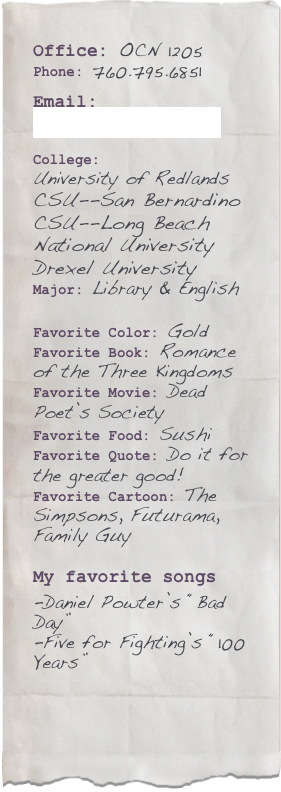 Office: OCN 1205
Phone: 760.795.6851
Email:
College:
University of Redlands
CSU--San Bernardino
CSU--Long Beach
National University
Drexel University
Major: Library & English
Favorite Color: Gold
Favorite Book: Romance
of the Three Kingdoms
Favorite Movie: Dead
Poet's Society
Favorite Food: Sushi
Favorite Quote: Do it for
the greater good!
Favorite Cartoon: The
Simpsons, Futurama,
Family Guy
My favorite songs
-Daniel Powter's "Bad
Day"
-Five for Fighting's "100
Years"